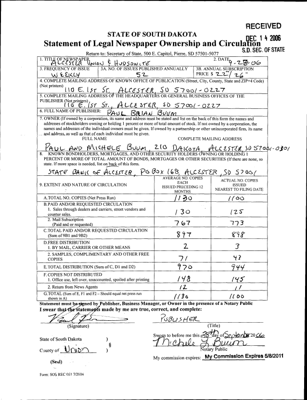 RECEIVED
DEC 14 2006
S.D. SEC. OF STATE
STATE OF SOUTH DAKOTA
Statement of Legal Newspaper Ownership and Circulation
Return to: Secretary of State, 500 E. Capitol, Pierre, SD 57501-5077
1. TITLE OF NEWSPAPER
ALCESTER UNION & HUDSONITE
2. DATE
9-28-06
3. FREQUENCY OF ISSUE
WEEKLY
3A. NO. OF ISSUES PUBLISHED ANNUALLY
52
3B. ANNUAL SUBSCRIPTION
PRICE $ 22/26
4. COMPLETE MAILING ADDRESS OF KNOWN OFFICE OF PUBLICATION (Street, City, County, State and ZIP+4 Code)
(Not printers)
110 E. 1ST ST. ALCESTER SD 57001-0227
5. COMPLETE MAILING ADDRESS OF THE HEADQUARTERS OR GENERAL BUSINESS OFFICES OF THE
PUBLISHER (Not printers)
110 E. 1ST ST., ALCESTER, SD 57001-0227
6. FULL NAME OF PUBLISHER:
PAUL BRIAN BUUM
7. OWNER (If owned by a corporation, its name and address must be stated and also on the back of this form the names and
addresses of stockholders owning or holding 1 percent or more of total amount of stock. If not owned by a corporation, the
names and addresses of the individual owners must be given. If owned by a partnership or other unincorporated firm, its name
and address, as well as that of each individual must be given.
FULL NAME
COMPLETE MAILING ADDRESS
PAUL AND MICHELE BUUM 210 DAKOTA ALCESTER SD 57001-0301
8. KNOWN BONDHOLDERS, MORTGAGEES, AND OTHER SECURITY HOLDERS OWNING OR HOLDING 1
PERCENT OR MORE OF TOTAL AMOUNT OF BONDS, MORTGAGES OR OTHER SECURITIES (If there are none, so
state. If more space is needed, list on back of this form.
STATE BANK OF ALCESTER, PO BOX 168 ALCESTER, SD 57001
9. EXTENT AND NATURE OF CIRCULATION
AVERAGE NO. COPIES
EACH
ISSUED PRECEDING 12
MONTHS
ACTUAL NO. COPIES
ISSUED
NEAREST TO FILING DATE
A. TOTAL NO. COPIES (Net Press Run)
1130
1100
B. PAID AND/OR REQUESTED CIRCULATION
1. Sales through dealers and carriers, street vendors and
counter sales
130
125
2. Mail Subscription
(Paid and/or requested)
767
773
C. TOTAL PAID AND/OR REQUESTED CIRCULATION
(Sum of 9B1 and 9B2)
897
898
D. FREE DISTRIBUTION
1. BY MAIL, CARRIER OR OTHER MEANS
2
3
2. SAMPLES, COMPLIMENTARY AND OTHER FREE
COPIES
71
43
E. TOTAL DISTRIBUTION (Sum of C, D1 and D2)
970
944
F. COPIES NOT DISTRIBUTED
1. Office use, left over, unaccounted, spoiled after printing
148
145
2. Return from News Agents
12
11
G. TOTAL (Sum of E, F1 and F2 - Should equal net press run
shown in A)
1130
1100
Statement must be signed by Publisher, Business Manager, or Owner in the presence of a Notary Public
I swear that the statements made by me are true, correct, and complete:
PUBLISHER
(Signature)
(Title)
State of South Dakota )
County of Union )
(Seal)
Michele L. Buum
Notary Public
My commission expires: My Commission Expires 5/8/2011